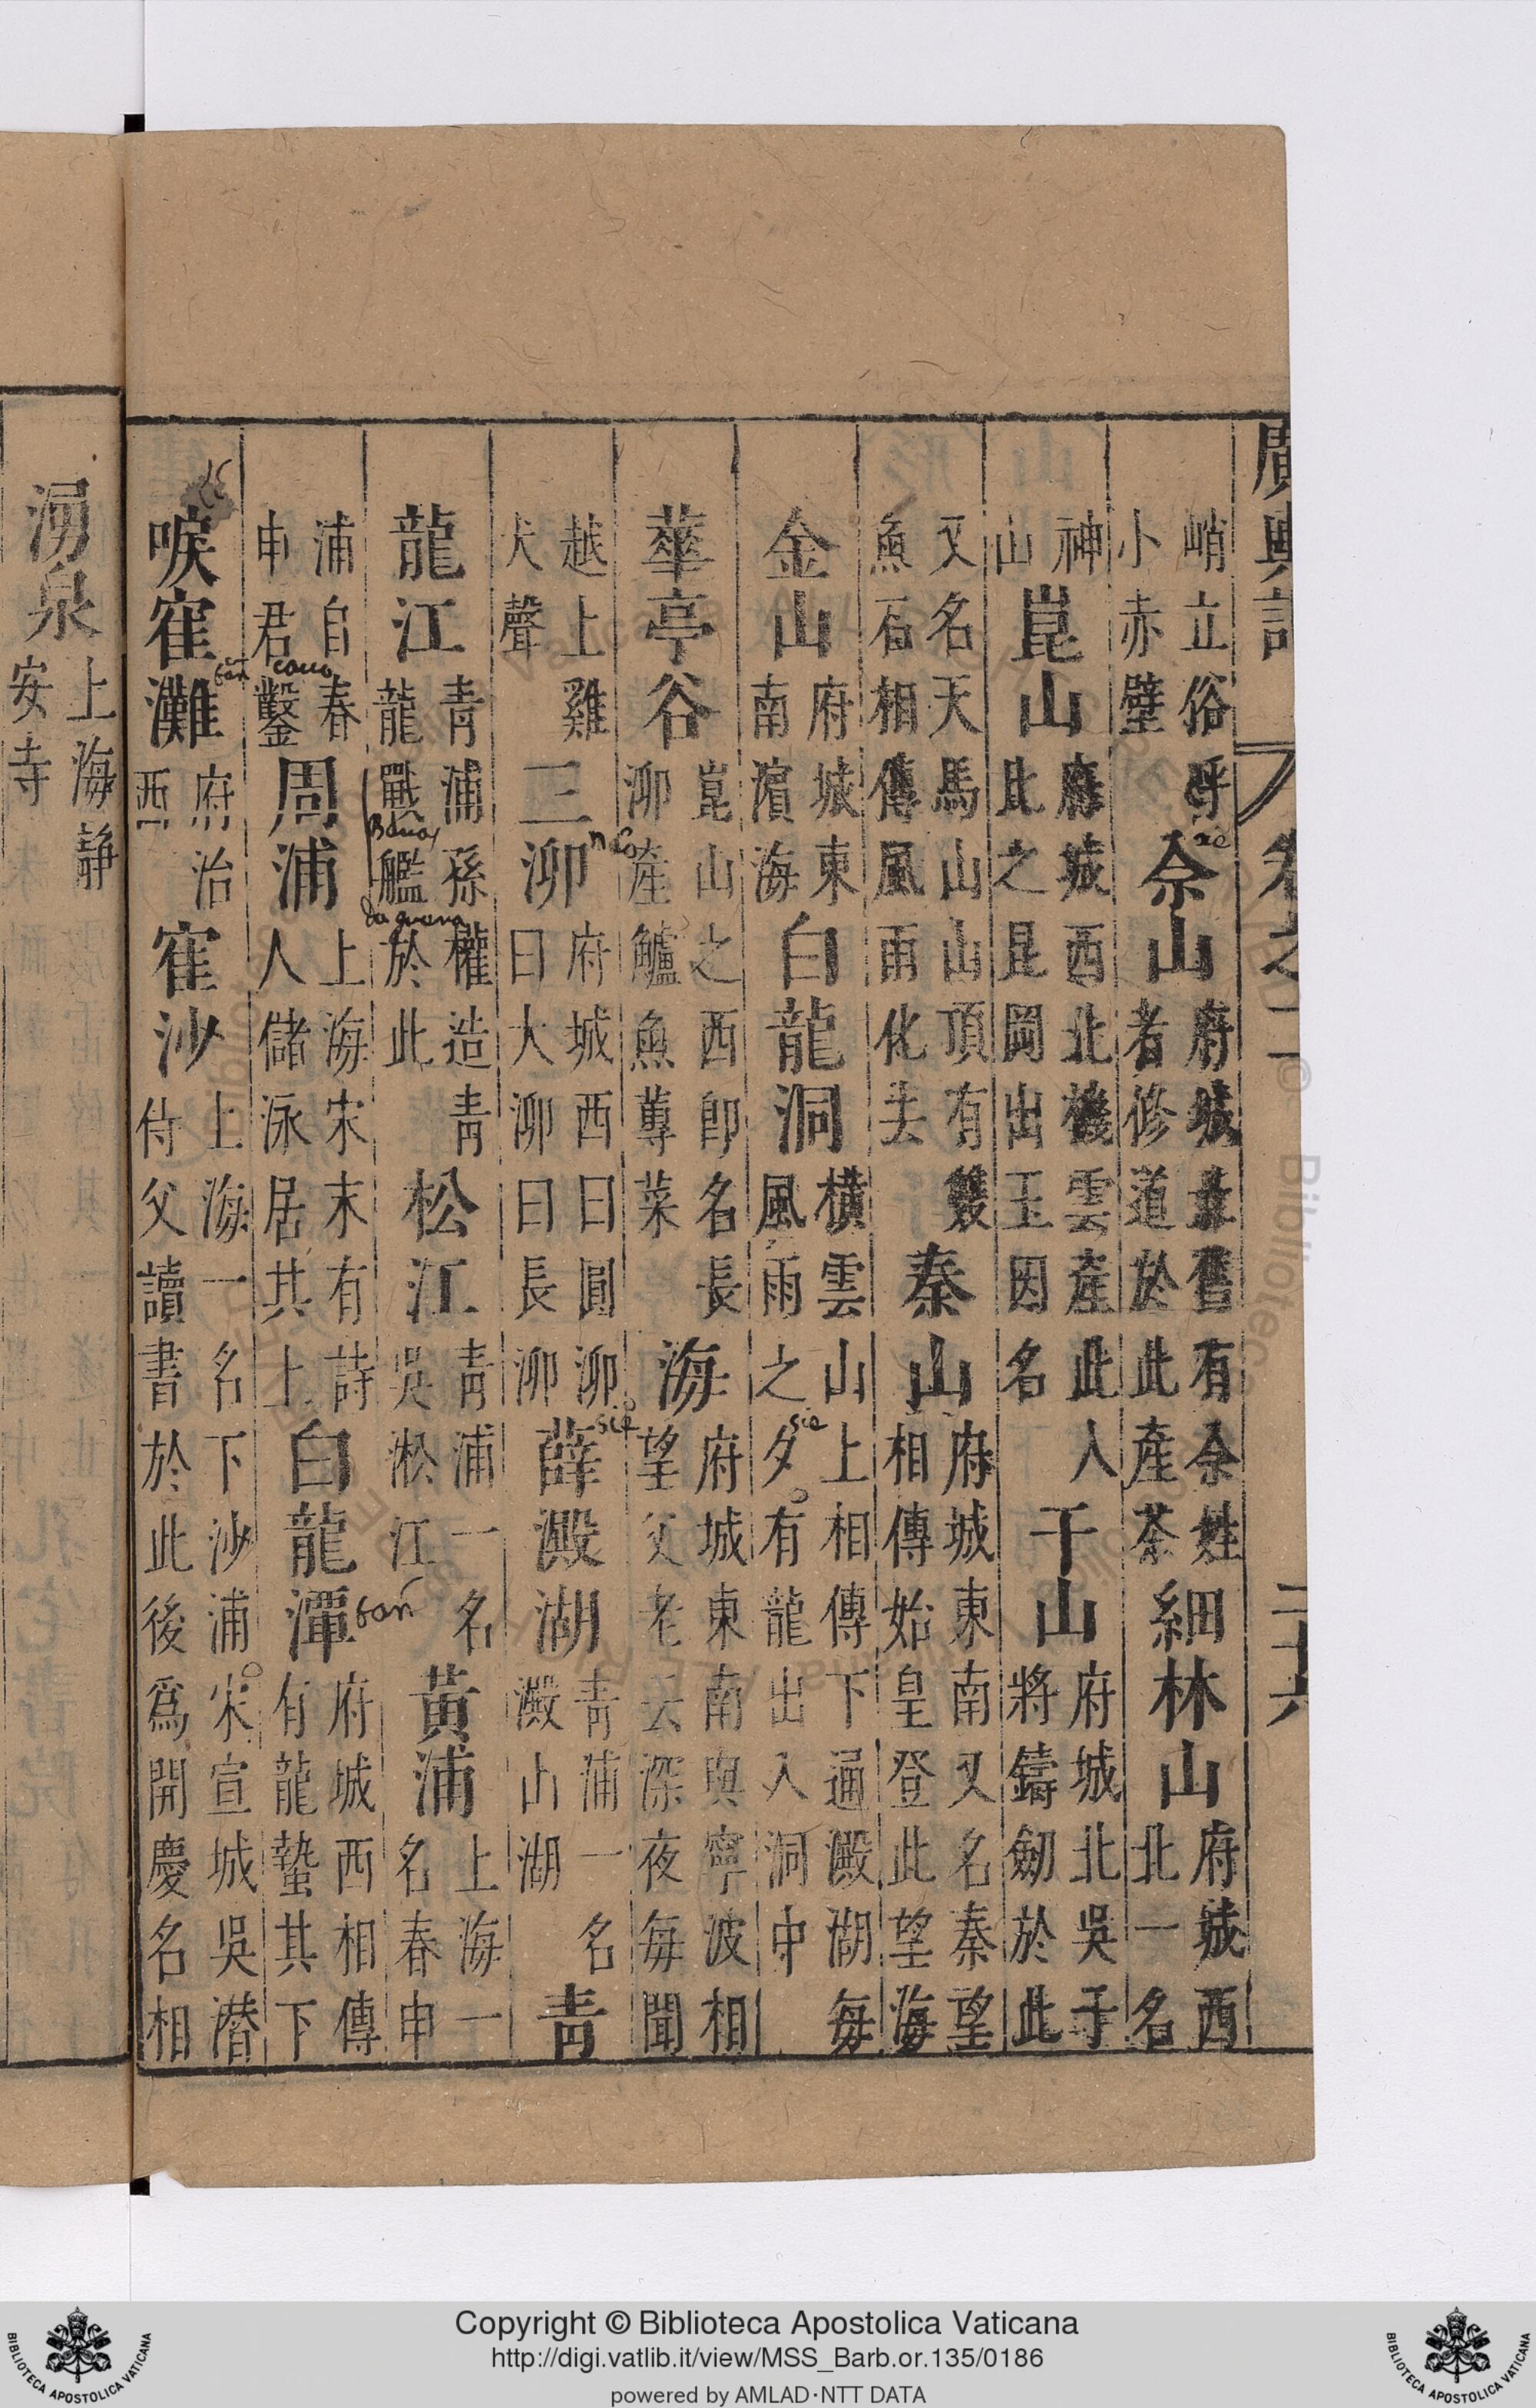 廣輿記 卷之二 二十六
峭立俗呼小赤壁佘山府城北舊有佘姓者修道於此產茶細林山府城西北一名
神山崑山府城西北機雲產此人此之昆岡出玉因名干山府城北吳干將鑄劒於此
又名天馬山山頂有雙魚石相傳風雨化去秦山府城東南又名秦望相傳始皇登此望海
金山府城東南濵海白龍洞橫雲山上相傳下通澱湖每風雨之夕有龍出入洞中
華亭谷崑山之西卽名長泖產鱸魚蓴菜海府城東南與寧波相望父老云深夜每聞
越上雞犬聲三泖府城西曰圓泖曰大泖曰長泖薛澱湖青浦一名澱山湖青
龍江青浦孫權造青龍戰艦於此松江青浦一名吳淞江黃浦上海一名春申
浦自春申君鑿周浦上海宋末有詩人儲泳居其上白龍潭府城西相傳有龍蟄其下
唳寉灘府治西寉沙上海一名下沙浦宋宣城吳潛侍父讀書於此後爲開慶名相
湧泉上海静安寺
Copyright © Biblioteca Apostolica Vaticana
http://digi.vatlib.it/view/MSS_Barb.or.135/0186
powered by AMLAD·NTT DATA